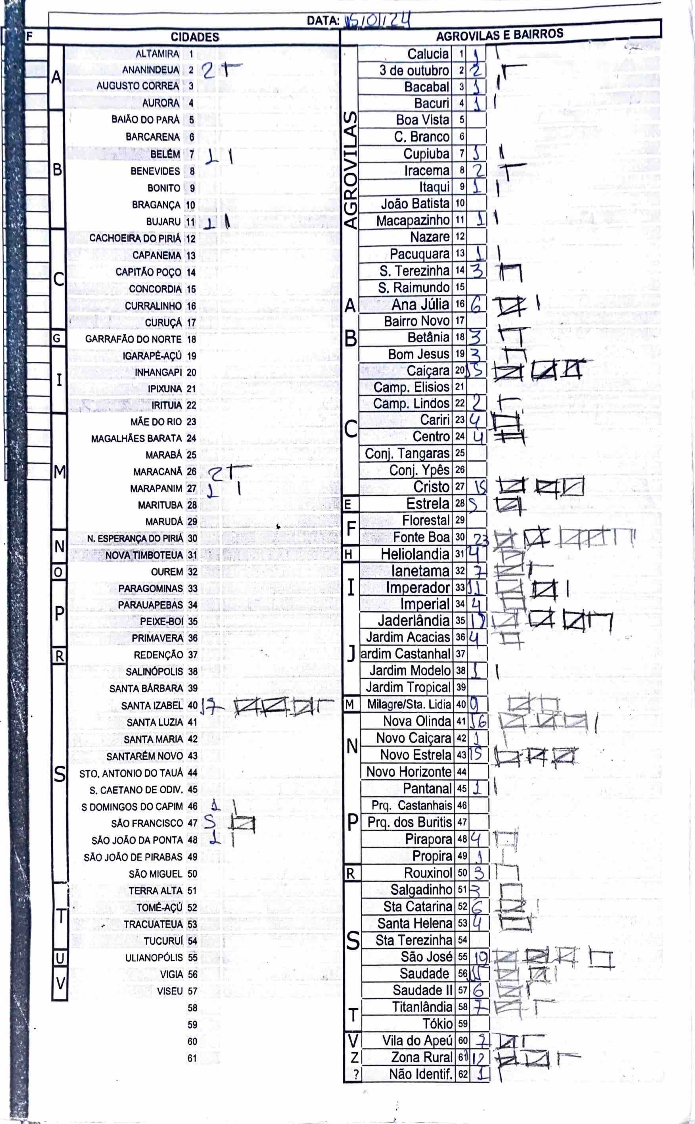 DATA: 15/01/24
F
CIDADES
AGROVILAS E BAIRROS
A
ALTAMIRA 1
ANANINDEUA 2 2
AUGUSTO CORREA 3
AURORA 4
B
BAIÃO DO PARÁ 5
BARCARENA 6
BELÉM 7 1
BENEVIDES 8
BONITO 9
BRAGANÇA 10
BUJARU 11 1
C
CACHOEIRA DO PIRIÁ 12
CAPANEMA 13
CAPITÃO POÇO 14
CONCORDIA 15
CURRALINHO 16
CURUÇÁ 17
G
GARRAFÃO DO NORTE 18
I
IGARAPÉ-AÇÚ 19
INHANGAPI 20
IPIXUNA 21
IRITUIA 22
M
MÃE DO RIO 23
MAGALHÃES BARATA 24
MARABÁ 25
MARACANÃ 26 2
MARAPANIM 27 1
MARITUBA 28
MARUDÁ 29
N
N. ESPERANÇA DO PIRIÁ 30
NOVA TIMBOTEUA 31
O
OUREM 32
P
PARAGOMINAS 33
PARAUAPEBAS 34
PEIXE-BOI 35
PRIMAVERA 36
R
REDENÇÃO 37
S
SALINÓPOLIS 38
SANTA BÁRBARA 39
SANTA IZABEL 40 17
SANTA LUZIA 41
SANTA MARIA 42
SANTARÉM NOVO 43
STO. ANTONIO DO TAUÁ 44
S. CAETANO DE ODIV. 45
S DOMINGOS DO CAPIM 46 1
SÃO FRANCISCO 47 5
SÃO JOÃO DA PONTA 48 1
SÃO JOÃO DE PIRABAS 49
SÃO MIGUEL 50
T
TERRA ALTA 51
TOMÉ-AÇÚ 52
TRACUATEUA 53
TUCURUÍ 54
U
ULIANÓPOLIS 55
V
VIGIA 56
VISEU 57
58
59
60
61
AGROVILAS
Calucia 1 1
3 de outubro 2 2
Bacabal 3 1
Bacuri 4 1
Boa Vista 5
C. Branco 6
Cupiuba 7 1
Iracema 8 2
Itaqui 9 1
João Batista 10
Macapazinho 11 1
Nazare 12
Pacuquara 13 1
S. Terezinha 14 3
S. Raimundo 15
A
Ana Júlia 16 6
B
Bairro Novo 17
Betânia 18 3
Bom Jesus 19 3
C
Caiçara 20 15
Camp. Elisios 21
Camp. Lindos 22 2
Cariri 23 4
Centro 24 4
Conj. Tangaras 25
Conj. Ypês 26
Cristo 27 15
E
Estrela 28 5
F
Florestal 29
Fonte Boa 30 23
H
Heliolandia 31 4
I
Ianetama 32 7
Imperador 33 11
Imperial 34 4
J
Jaderlândia 35 17
Jardim Acacias 36 4
Jardim Castanhal 37
Jardim Modelo 38 1
Jardim Tropical 39
M
Milagre/Sta. Lidia 40 9
N
Nova Olinda 41 16
Novo Caiçara 42 1
Novo Estrela 43 15
Novo Horizonte 44
P
Pantanal 45 1
Prq. Castanhais 46
Prq. dos Buritis 47
Pirapora 48 4
Propira 49 1
R
Rouxinol 50 3
S
Salgadinho 51 3
Sta Catarina 52 6
Santa Helena 53 4
Sta Terezinha 54
São José 55 19
Saudade 56 11
Saudade II 57 6
T
Titanlândia 58 7
Tókio 59
V
Vila do Apeú 60 7
Z
Zona Rural 61 12
?
Não Identif. 62 1